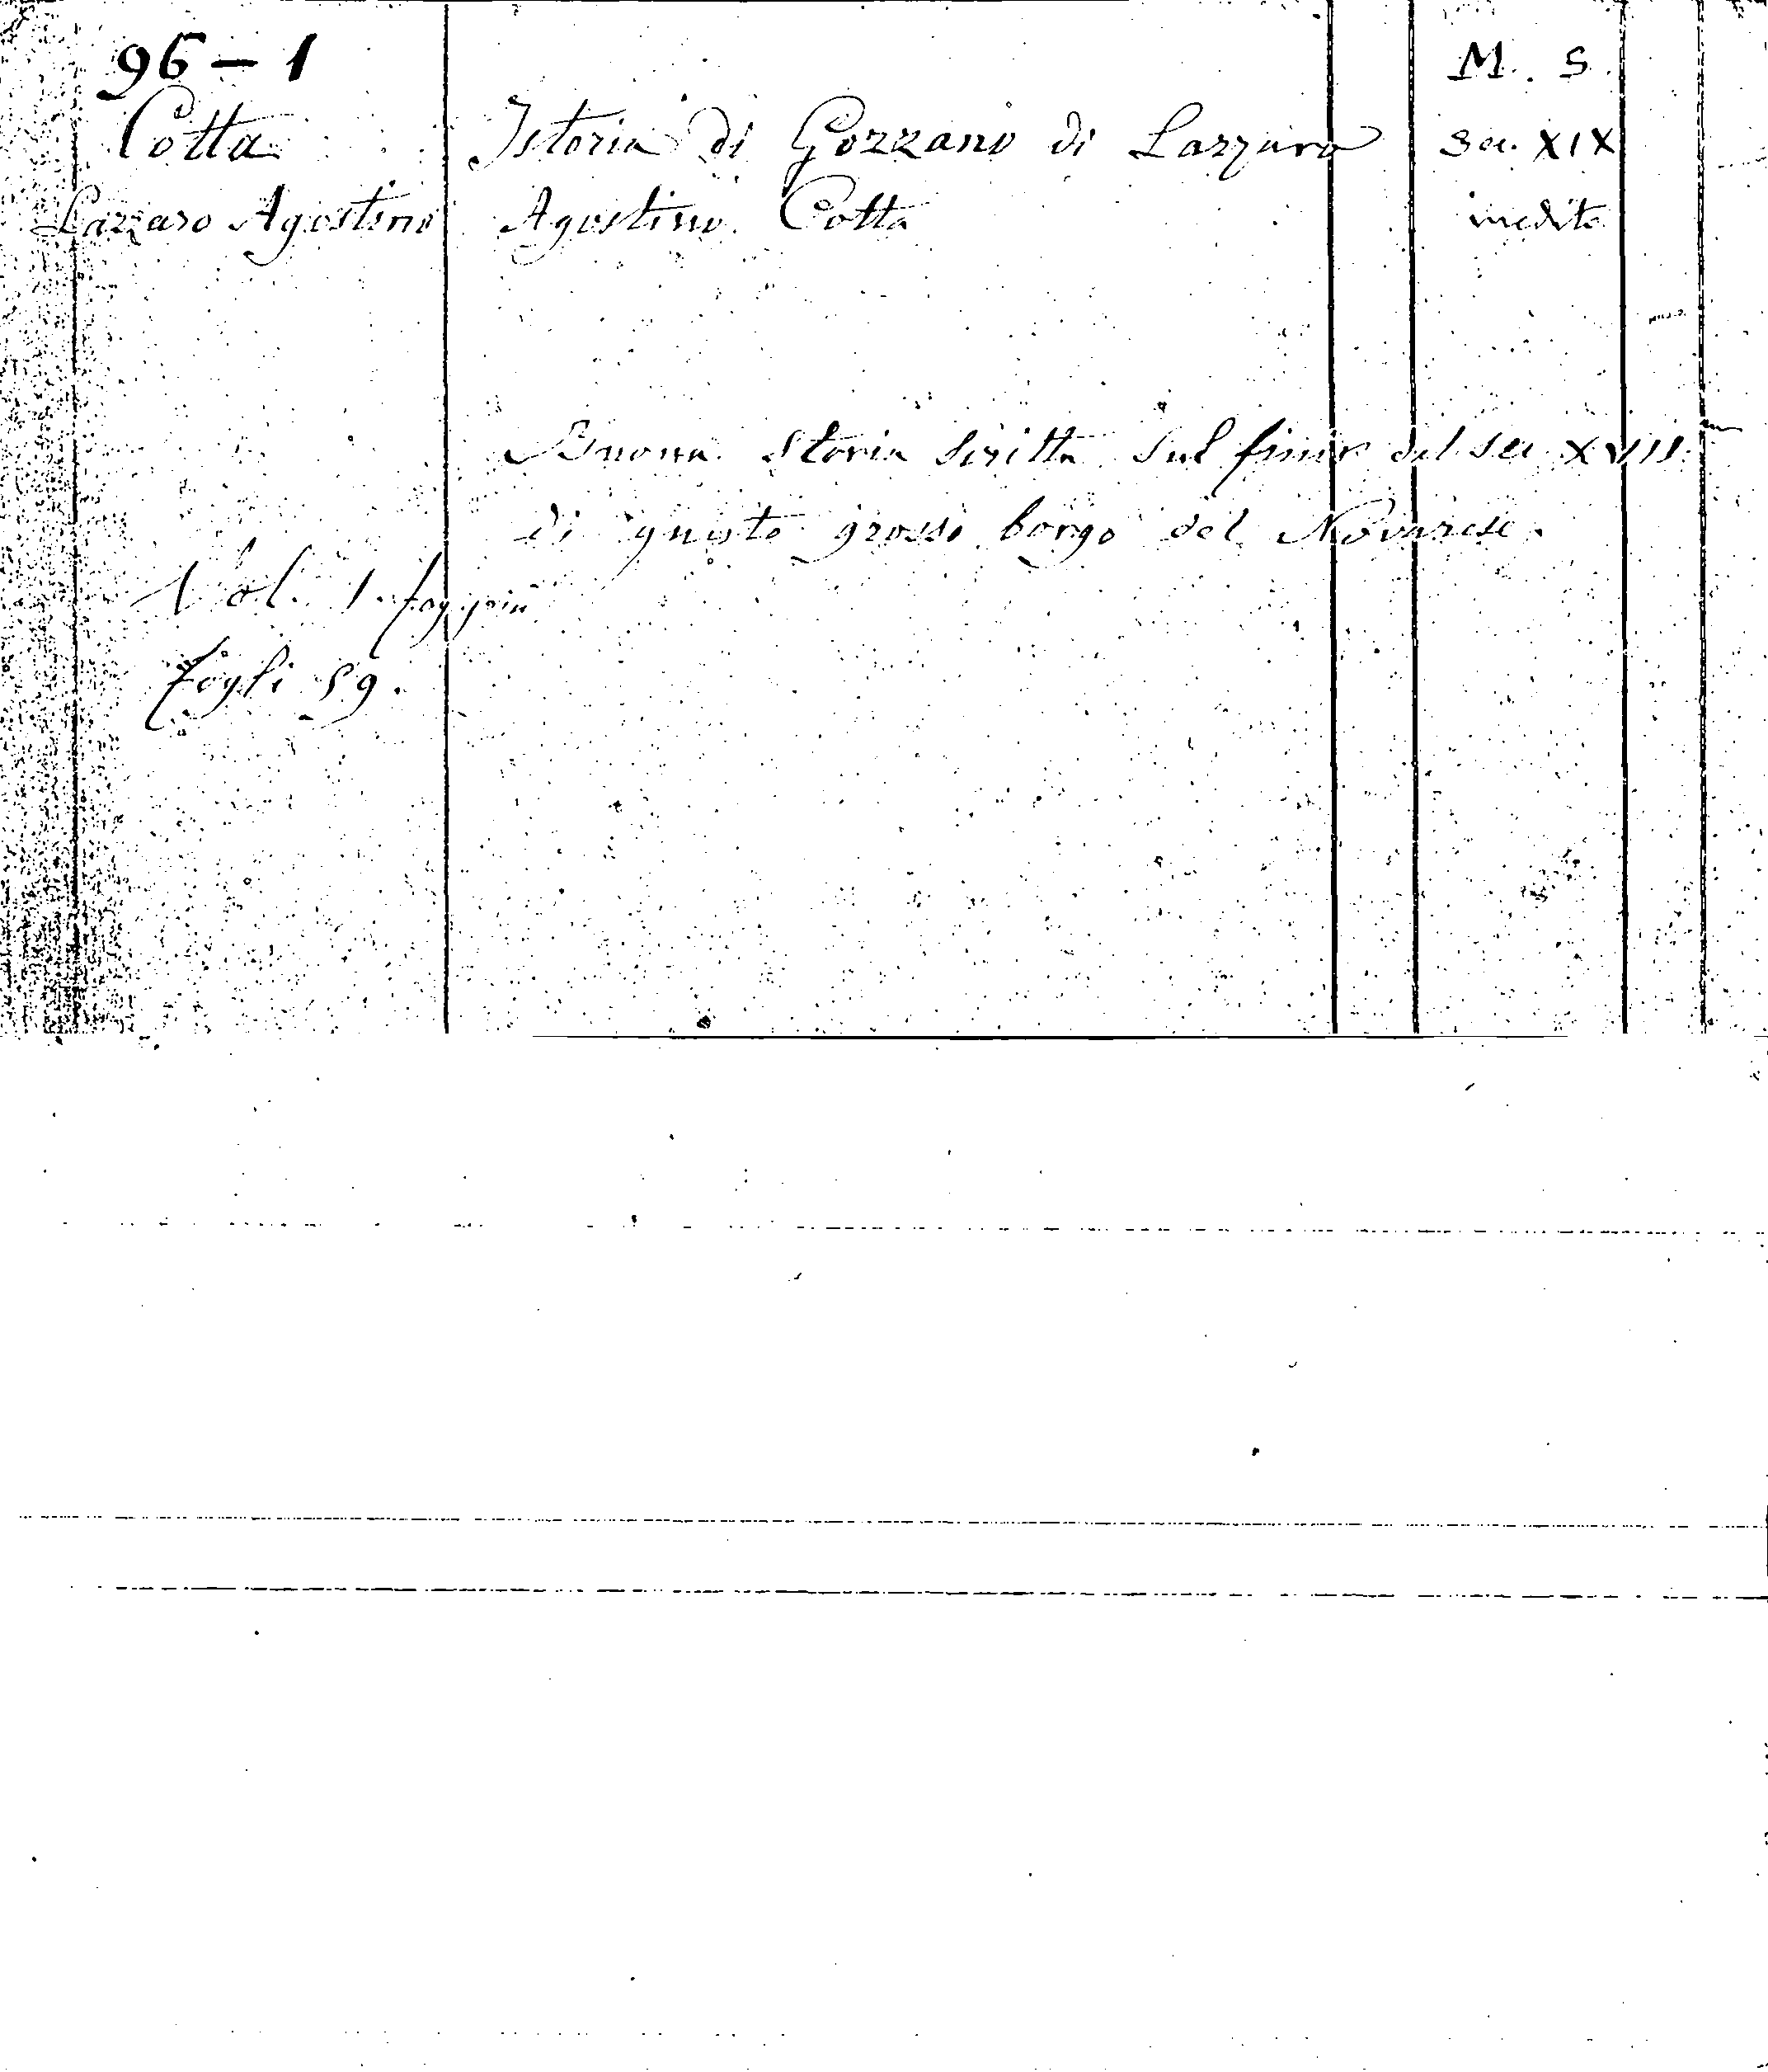 96 – 1
M. S.
Cotta
Istoria di Gozzano di Lazzaro
Sec. XIX
Lazzaro Agostino
Agostino Cotta
inedito
Buona Storia scritta sul finir del sec. XVII
di questo grosso borgo del Novarese.
Vol. 1.
fogli 59.